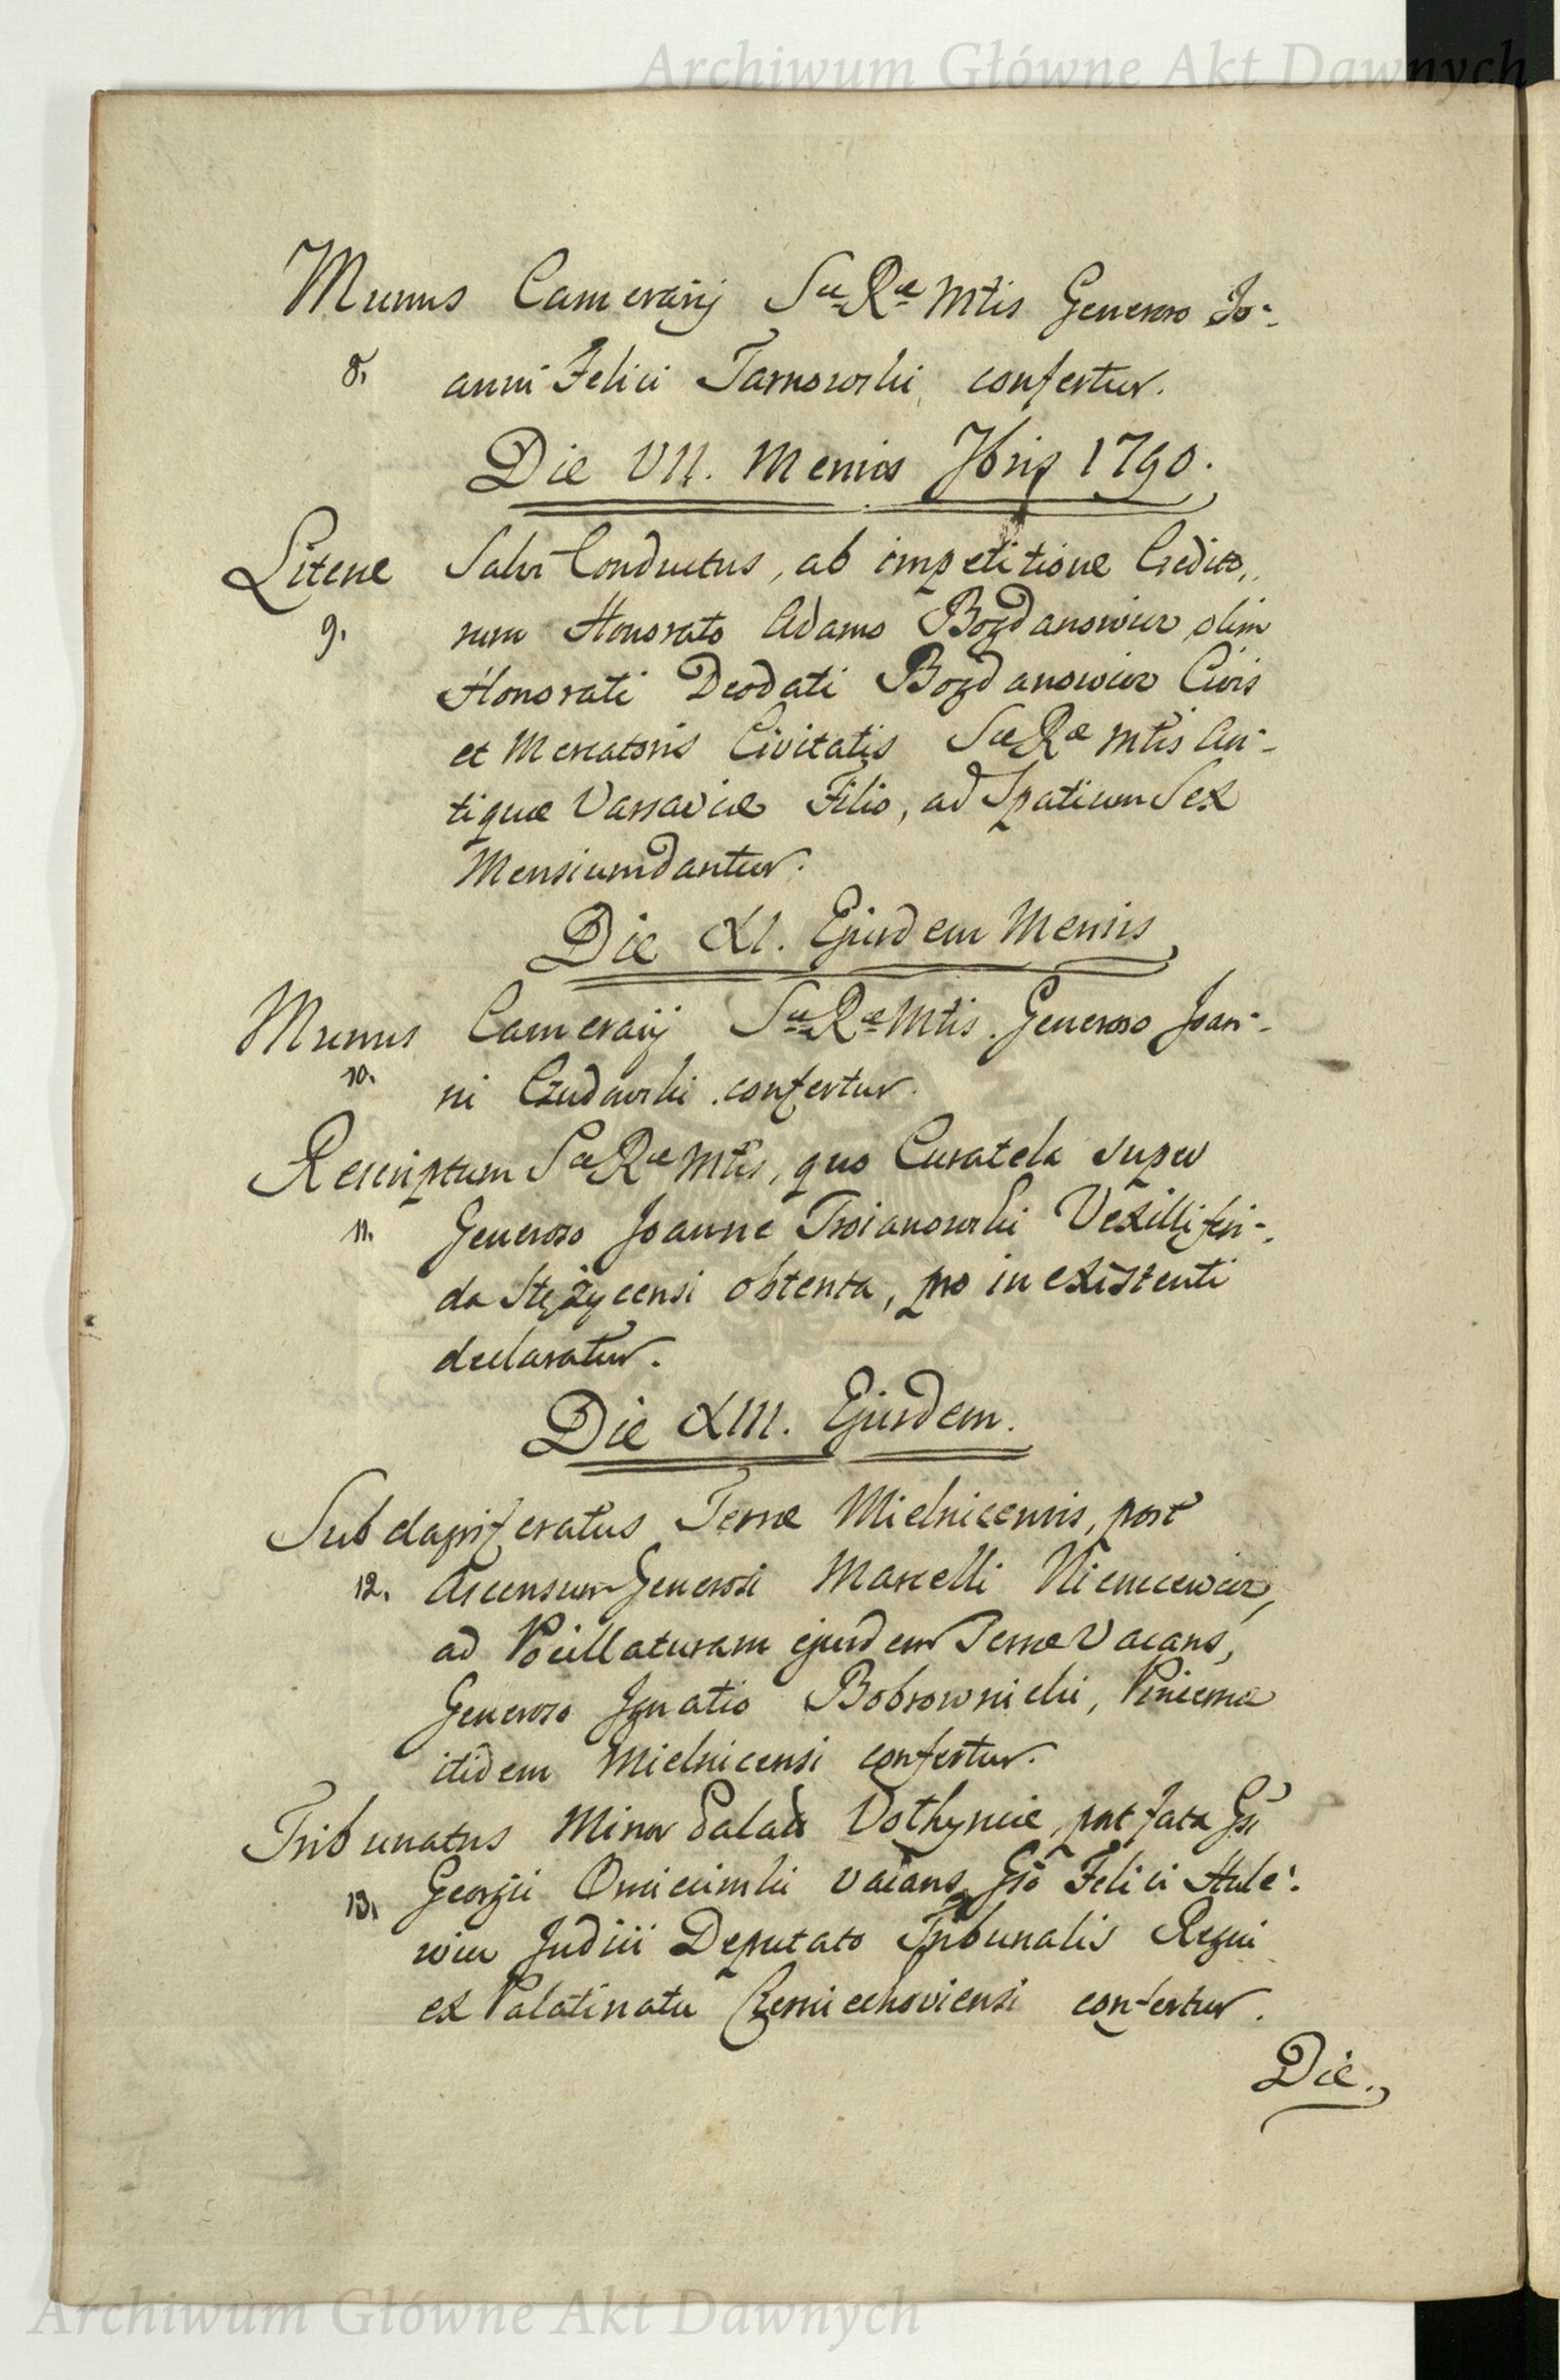 Archiwum Główne Akt Dawnych
Munus Camerarij Sæ Ræ Mtis Generoso Jo-
8. anni Felici Tarnowski confertur.
Die VII. Mensis 7bris 1790.
Literæ Salvi Conductus, ab impetitione Credito„
9. rum Honorato Adamo Bogdanowicz olim
Honorati Deodati Bogdanowicz Civis
et Mercatoris Civitatis Sæ Ræ Mtis An-
tiquæ Varsaviæ Filio, ad Spatium Sex
Mensium dantur.
Die XI. Ejusdem Mensis
Munus Camerarij Sæ Ræ Mtis Generoso Joan-
10. ni Czudowski confertur.
Rescriptum Sæ Ræ Mtis, quo Curatela super
11. Generoso Joanne Troianowski Vexillife-
do Stężycensi obtenta, pro inexistenti
declaratur.
Die XIII. Ejusdem.
Subdapiferatus Terræ Mielnicensis, post
12. Ascensum Generosi Marcelli Niemcewicz,
ad Pocillaturam ejusdem Terræ Vacans,
Generoso Ignatio Bobrownicki, Pincernæ
itidem Mielnicensi confertur.
Tribunatus Minor Palatus Volhyniæ, post fata Gsi
13. Georgii Omiecimski vacans, Gso Felici Hule-
wicz Judicii Deputato Tribunalis Regni
ex Palatinatu Czerniechoviensi confertur.
Die.,
Archiwum Główne Akt Dawnych